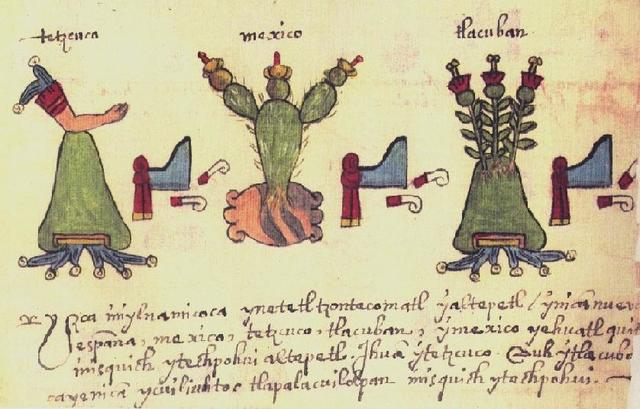 tetzcuco mexico tlacuban
Ysca ynilnamicoca ynetetl tzontecomatl yaltepetl / ynican nueva
españa, mexico, tetzcuco, tlacuban, ymexico yehuatl quit
misquich ytechpohui altepetl. Ihuã ytetzcuco. Auh ytlacuba
cayenican ycuiliuhtoc tlapalacuilolpan misquich ytechpohui.